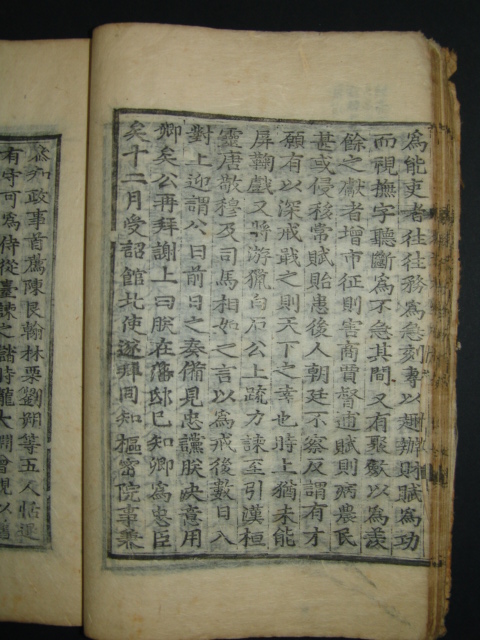 爲能吏者往往務爲急刻專以趣辦財賦爲功
而視撫字聽斷爲不急其間又有聚斂以爲羨
餘之獻者增市征則害商賈督逋賦則病農民
甚或侵移常賦貽患後人朝廷不察反謂有才
願有以深戒戢之則天下之幸也時上猶未能
屏鞠戲又將游獵白石公上疏力諫至引漢桓
靈唐敬穆及司馬相如之言以爲戒後數日入
對上迎謂公曰前日之奏備見忠讜朕決意用
卿矣公再拜謝上曰朕在藩邸已知卿爲忠臣
矣十二月受詔館北使遂拜同知樞密院事兼
參知政事首薦陳良翰林栗劉朔等五人恬退
有守可爲侍從臺諫之儲時龍大淵曾覿以舊